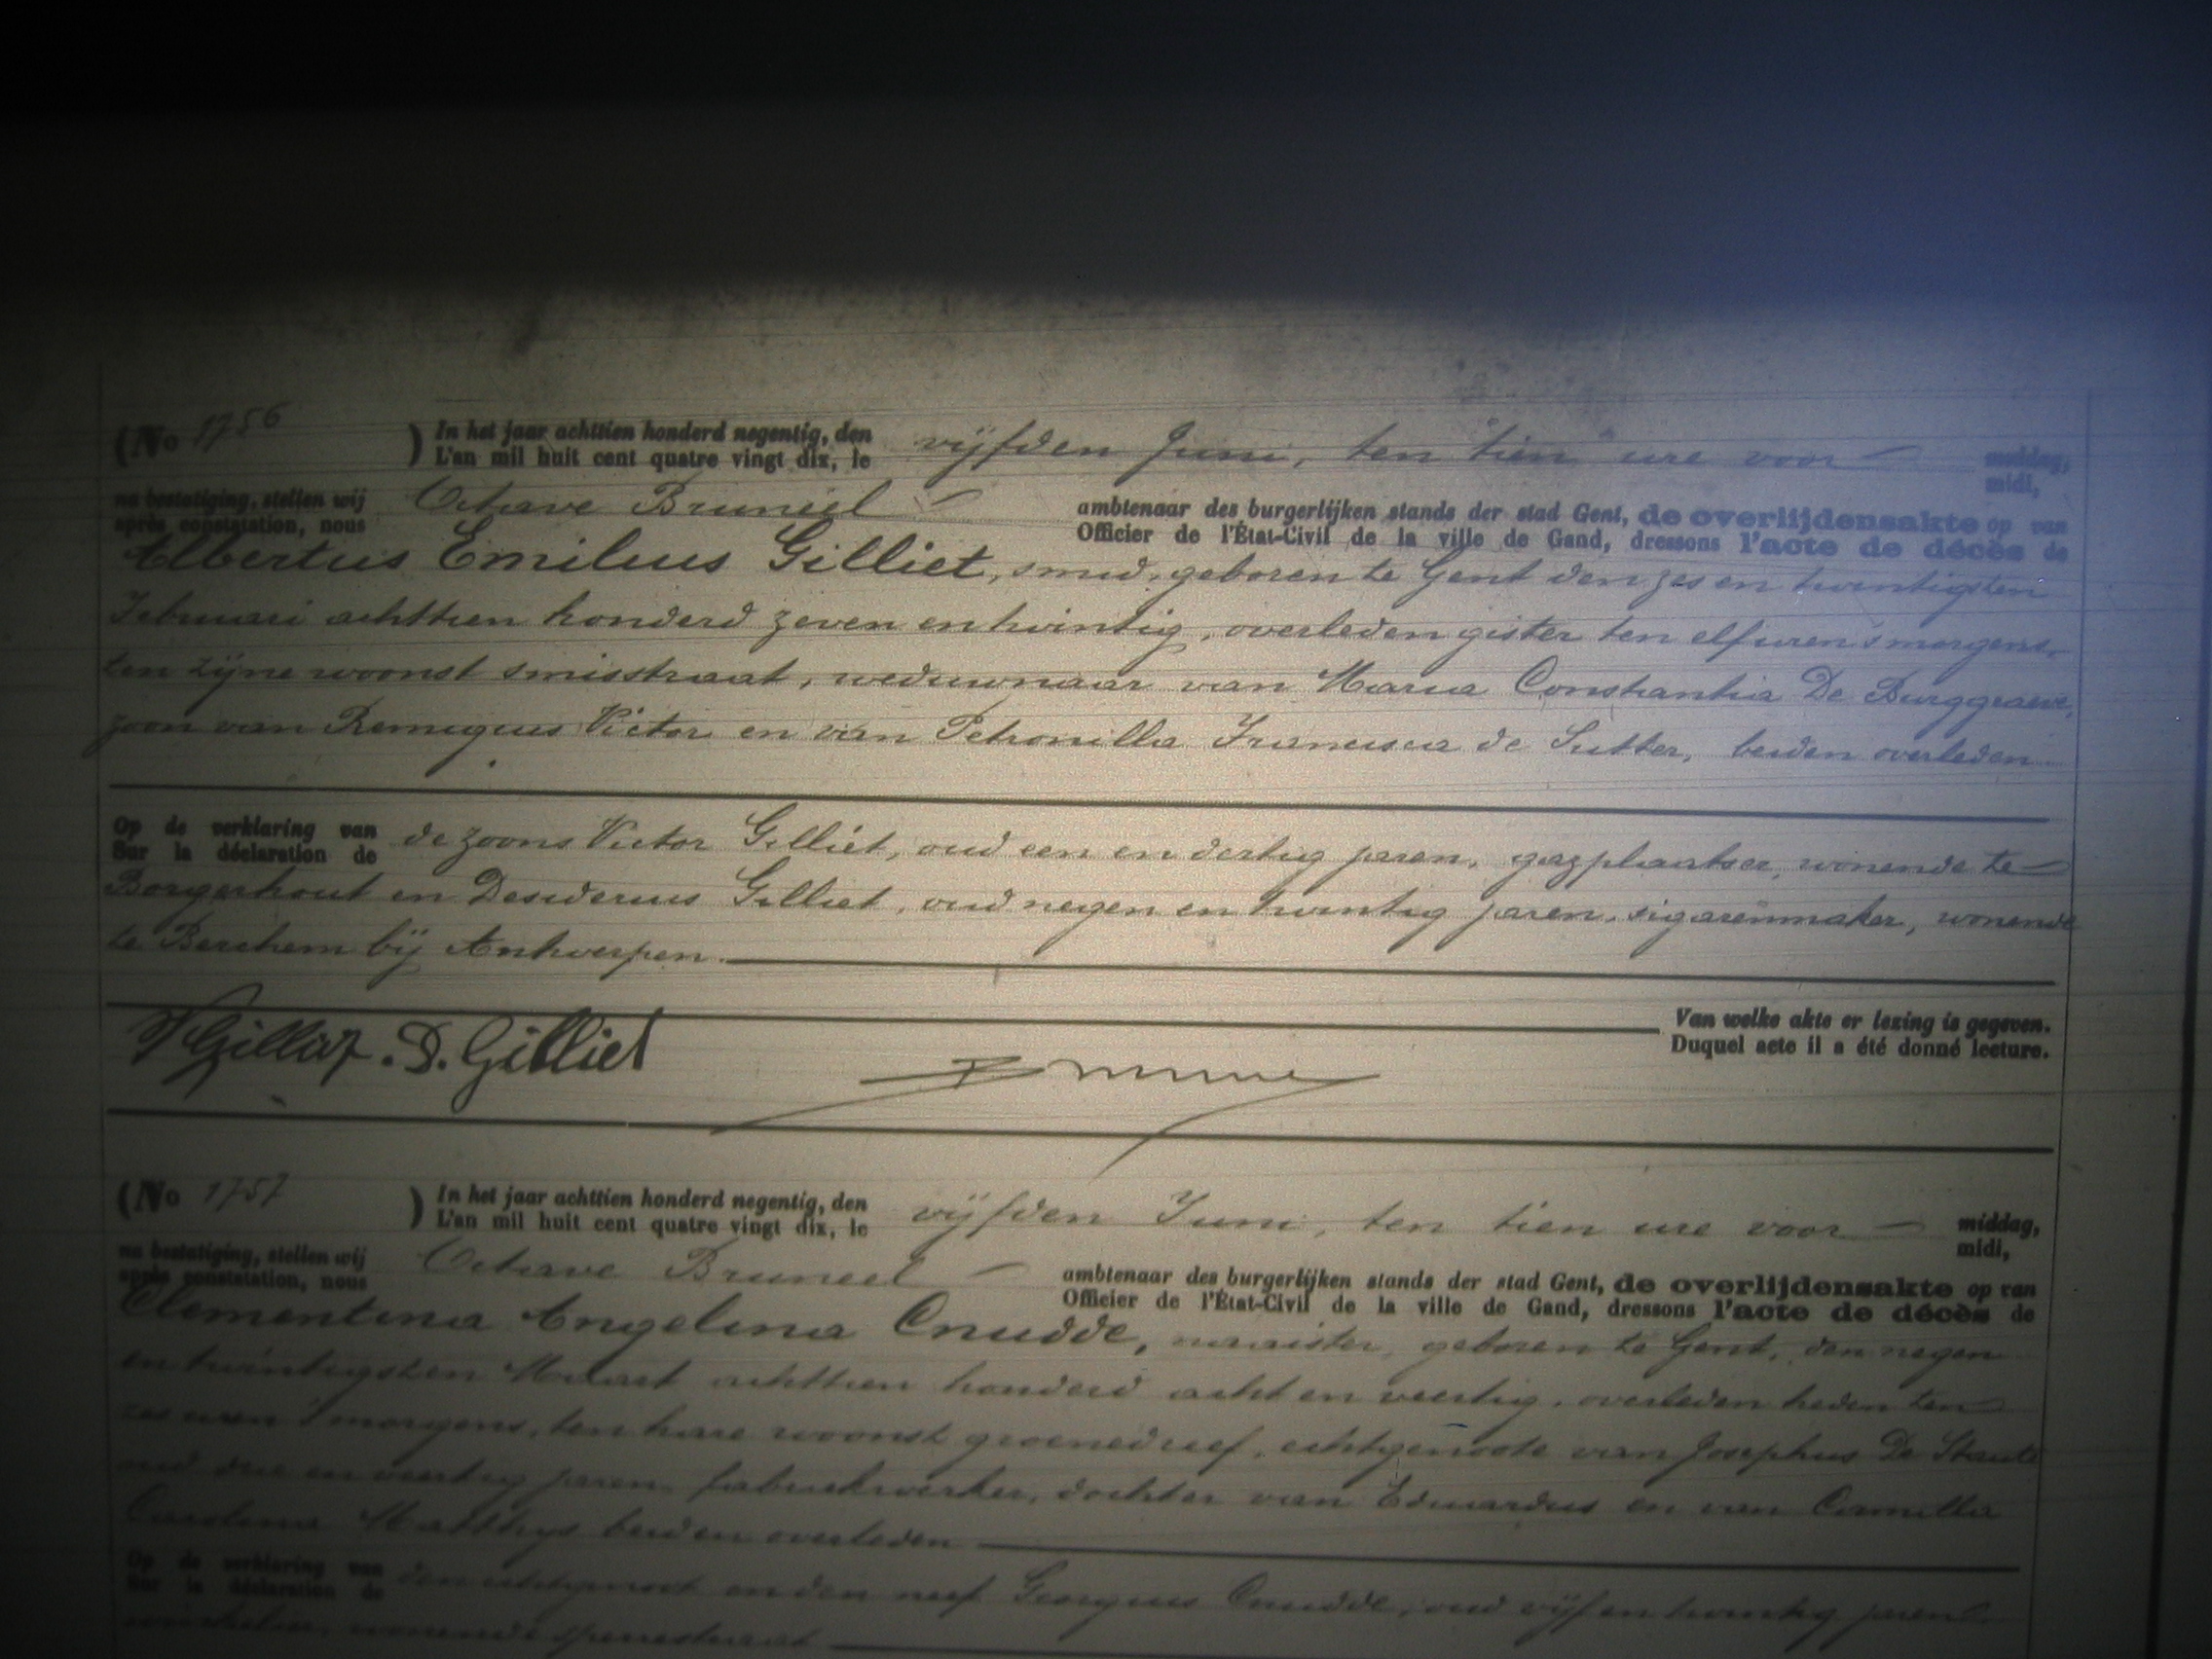 (No 1756 ) In het jaar achttien honderd negentig, den vijfden Juni, ten tien ure voor middag,
L'an mil huit cent quatre vingt dix, le midi,
na bestatiging, stellen wij Octave Bruneel ambtenaar des burgerlijken stands der stad Gent, de overlijdensakte op van
après constatation, nous Officier de l'État-Civil de la ville de Gand, dressons l'acte de décès de
Albertus Emilius Gilliet, smid, geboren te Gent den zes en twintigsten
Februari achttien honderd zeven en twintig, overleden gister ten elf uren 's morgens,
ten zijne woonst smisstraat, weduwnaar van Maria Constantia De Burggraeve,
zoon van Remigius Victor en van Petronilla Francisca de Sutter, beiden overleden
Op de verklaring van de zoons Victor Gilliet, oud een en dertig jaren, gazplaatser, wonende te
Sur la déclaration de
Borgerhout en Desiderius Gilliet, oud negen en twintig jaren, sigarenmaker, wonende
te Berchem bij Antwerpen.
Van welke akte er lezing is gegeven.
Duquel acte il a été donné lecture.
V Gilliet. D. Gilliet
(No 1757 ) In het jaar achttien honderd negentig, den vijfden Juni, ten tien ure voor middag,
L'an mil huit cent quatre vingt dix, le midi,
na bestatiging, stellen wij Octave Bruneel ambtenaar des burgerlijken stands der stad Gent, de overlijdensakte op van
après constatation, nous Officier de l'État-Civil de la ville de Gand, dressons l'acte de décès de
Clementina Angelina Cnudde, naaister, geboren te Gent, den negen
en twintigsten Maart achttien honderd acht en veertig, overleden heden ten
zes uren 's morgens, ten hare woonst groenedreef, echtgenoote van Josephus De
oud drie en veertig jaren, fabriekwerker, dochter van Eduardus en van Camilla
Carolina Matthys beiden overleden
Op de verklaring van den echtgenoot en den neef Georgius Cnudde, oud vijf en twintig jaren
Sur la déclaration de
wonende